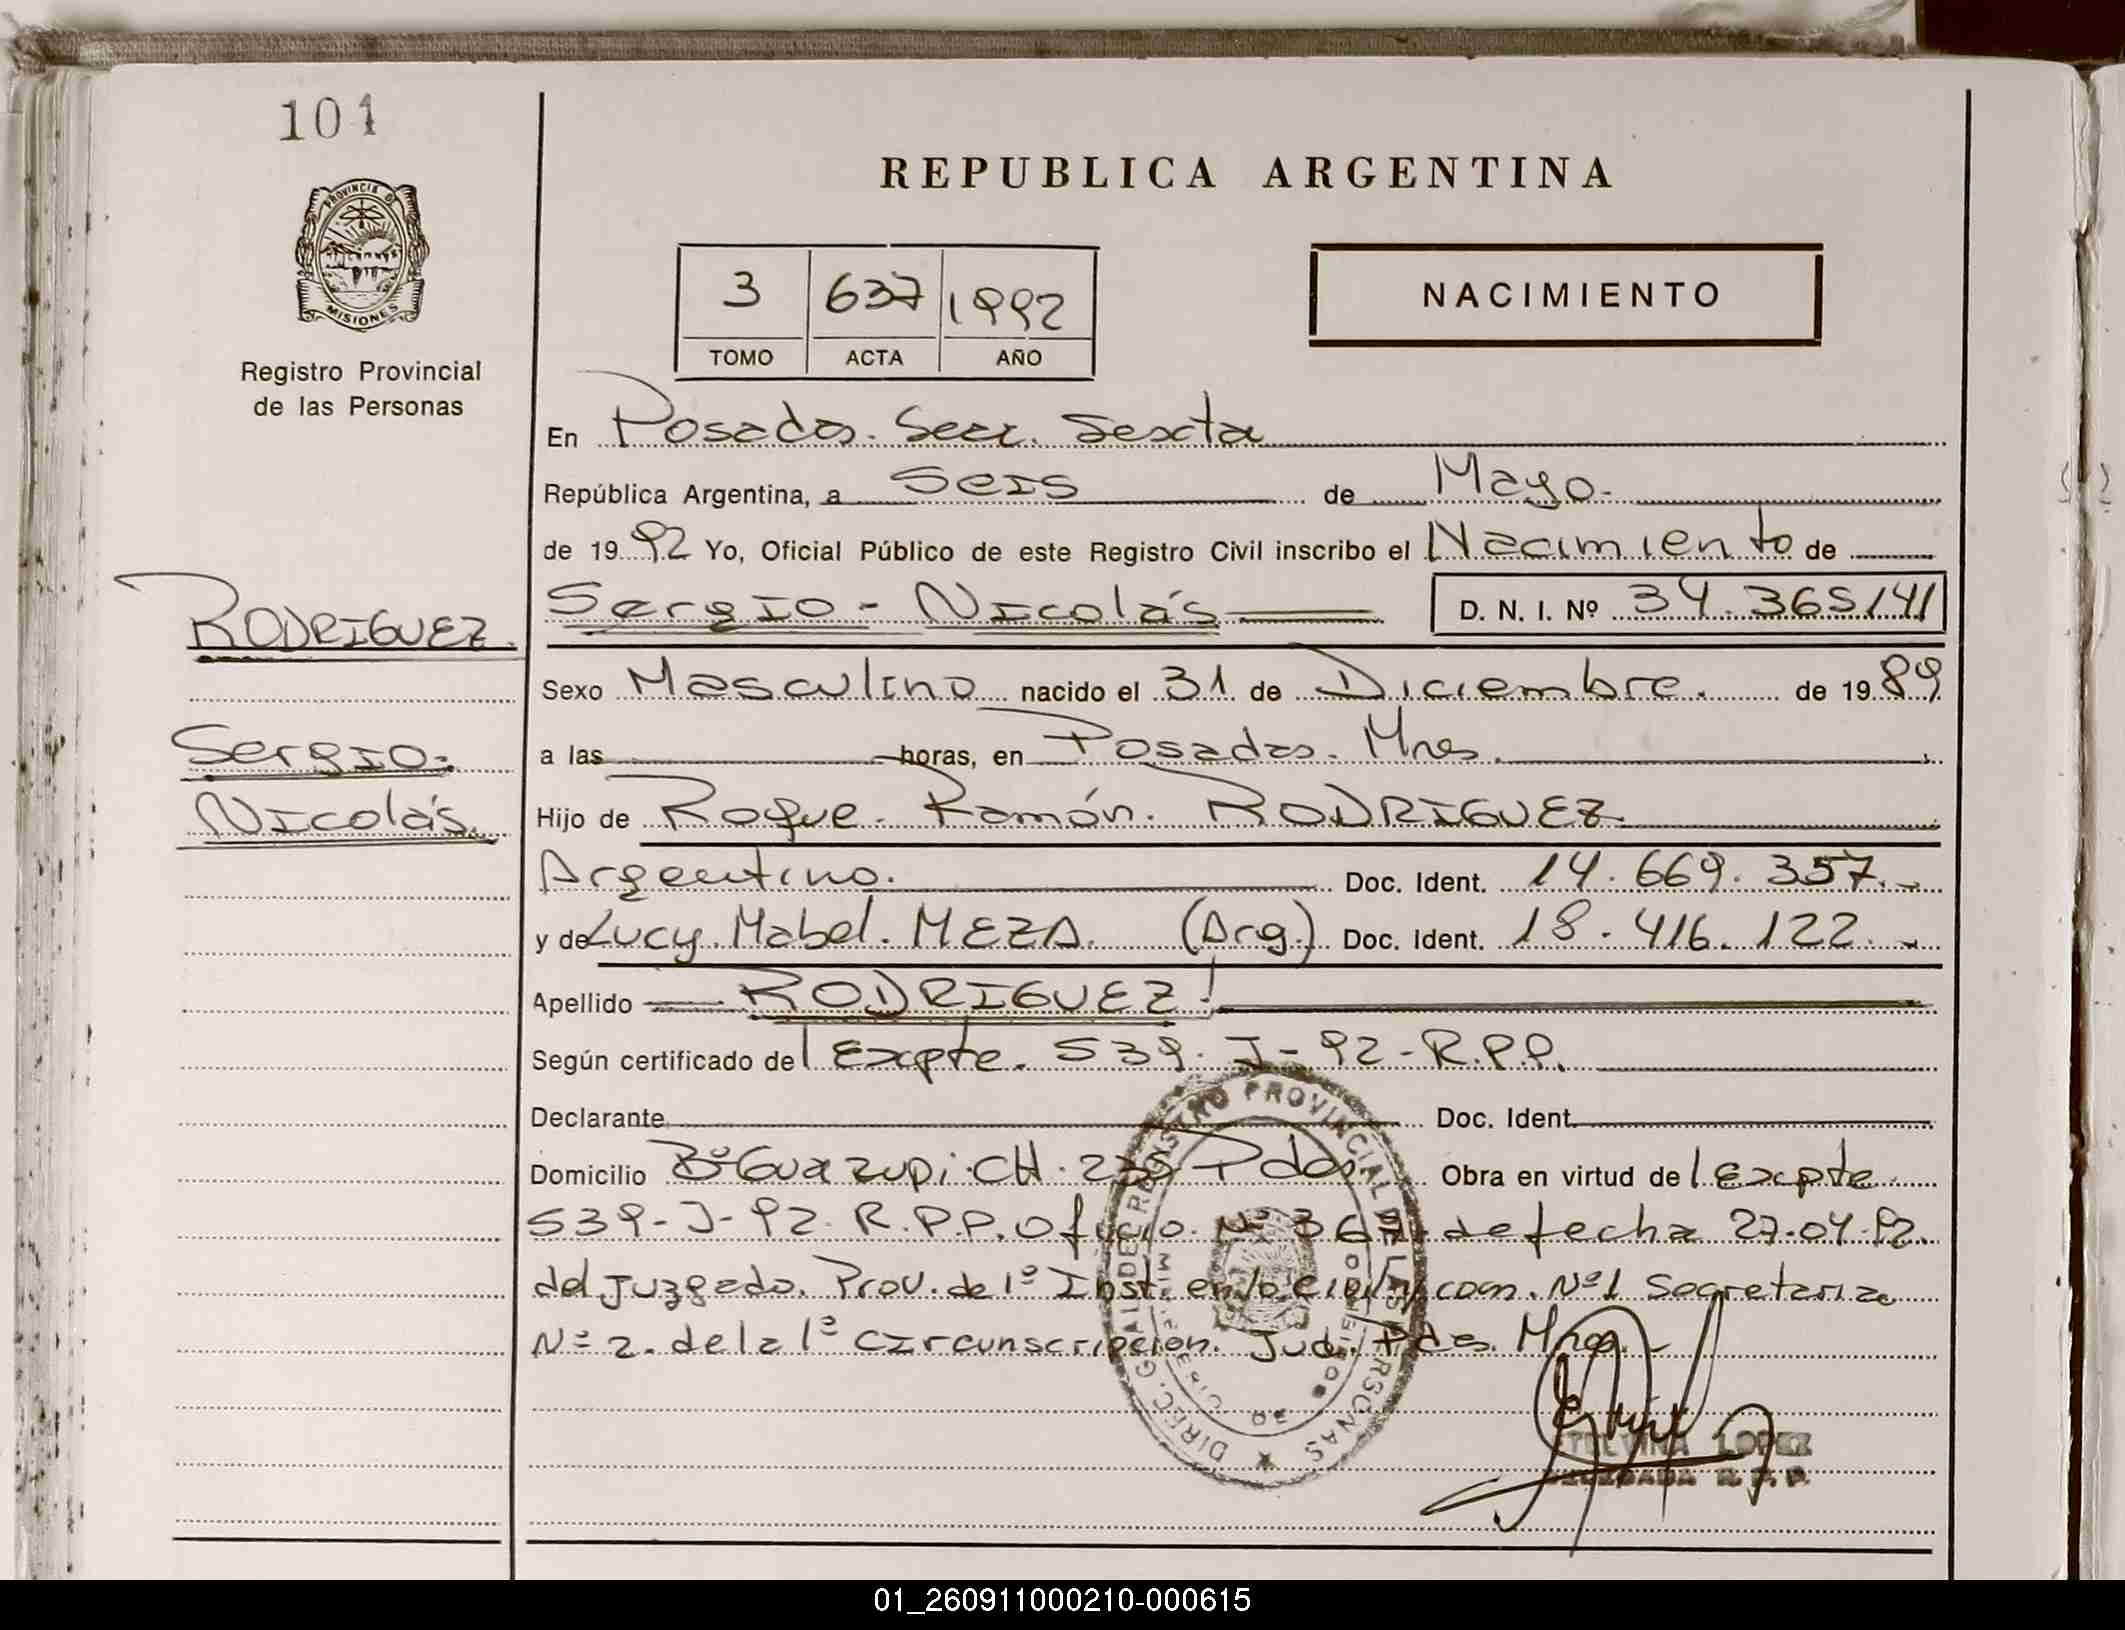 101
PROVINCIA DE
MISIONES
Registro Provincial
de las Personas
REPUBLICA ARGENTINA
3 637 1992
TOMO ACTA AÑO
NACIMIENTO
En Posadas. Secc. Sexta
República Argentina, a Seis de Mayo.
de 1992 Yo, Oficial Público de este Registro Civil inscribo el Nacimiento de
RODRIGUEZ.
Sergio-
Nicolás.
Sergio - Nicolás D. N. I. Nº 34.365141
Sexo Masculino nacido el 31 de Diciembre. de 1989
a las horas, en Posadas. Mnes.
Hijo de Roque. Ramón. RODRIGUEZ.
Argentino. Doc. Ident. 14.669.357.-
y de Lucy. Mabel. MEZA. (Arg.) Doc. Ident. 18.416.122.-
Apellido RODRIGUEZ
Según certificado del Expte. 539-J-92-R.P.P.
Declarante Doc. Ident.
Domicilio Bº Guazupi. CH. Pdas. Obra en virtud del Expte
539-J-92. R.P.P. Oficio. Nº de fecha 27.04.92.
del Juzgado. Prov. de 1º Inst. en lo Civil y com. Nº 1 Secretaria
Nº 2. de la 1º Circunscripción. Jud. Pdas. Mnes.-
DIREC. GRAL DE REGISTRO PROVINCIAL DE LAS PERSONAS
LOPEZ
01_260911000210-000615